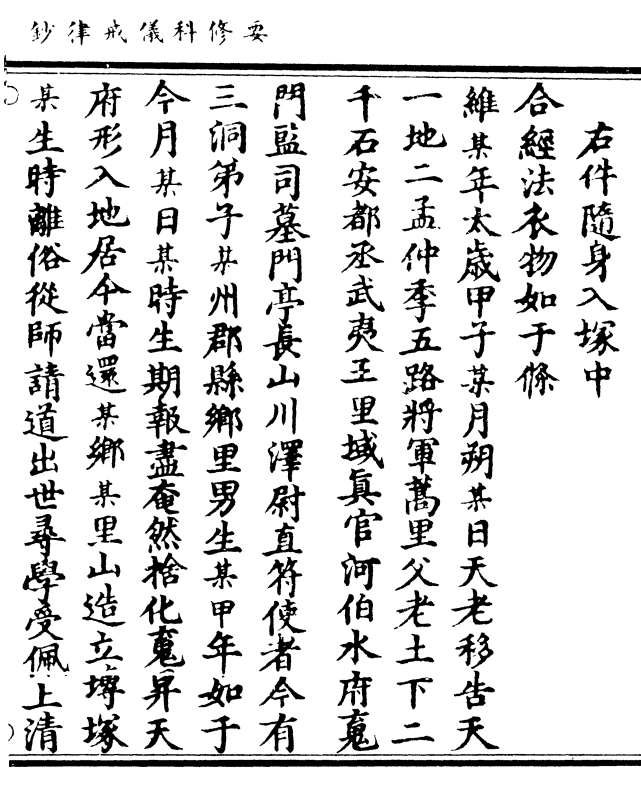 要修科儀戒律鈔
右件隨身入塚中
合經法衣物如于條
維某年太歲甲子某月朔某日天老移告天
一地二孟仲季五路將軍蒿里父老土下二
千石安都丞武夷王里域真官河伯水府䰟
門監司墓門亭長山川澤尉直符使者今有
三洞弟子某州郡縣鄉里男生某甲年如于
今月某日某時生期報盡奄然捨化䰟昇天
府形入地居今當還某鄉某里山造立塼塚
某生時離俗從師請道出世尋學受佩上清